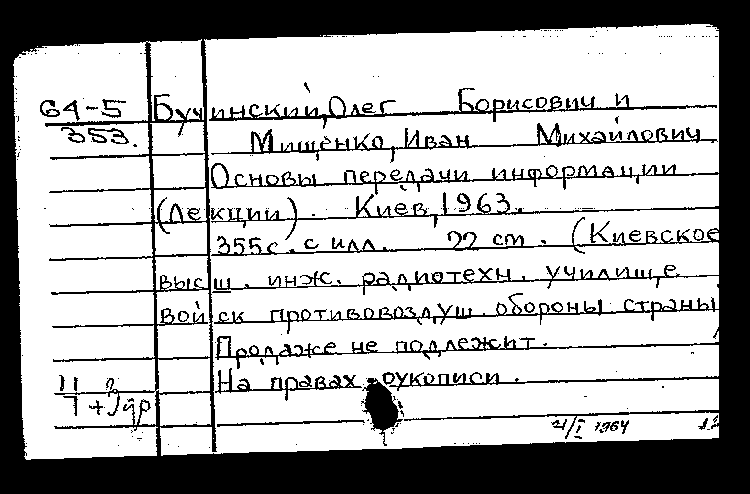 64-5 Бучинский, Олег Борисович и
353. Мищенко, Иван Михайлович.
Основы передачи информации
(Лекции). Киев, 1963.
355с. с илл. 22 см. (Киевское
высш. инж. радиотехн. училище
войск противовоздуш. обороны страны
Продаже не подлежит.
На правах рукописи.
21/I 1964